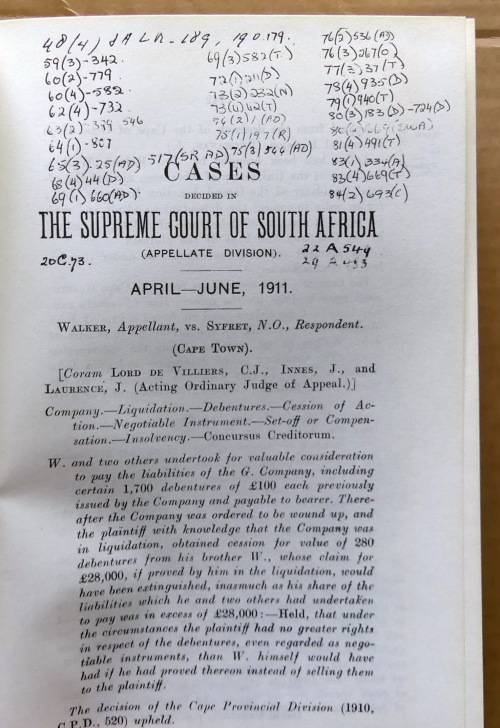 48(4) SALR-189, 190.179.
59(3)-342.
60(2)-779
60(4)-582
62(4)-732
63(2)- 546
64(1)-807
65(3).25(AD) 517(SR AD)
68(4)44(D)
69(1)660(AD).
69(3)582(T)
72(1)211(D)
73(2)232(N)
73(4)62(T)
74(2)1(AD)
75(1)197(R)
75(3)544(AD)
76(2)536(AD)
76(3)267(O)
77(3)37(T)
78(4)935(D)
79(1)940(T)
80(3)183(D)-724(D)
81(4)491(T)
83(1)334(A)
83(4)669(T)
84(2)693(C)
CASES
DECIDED IN
THE SUPREME COURT OF SOUTH AFRICA
(APPELLATE DIVISION).
20C.73.
22 A 549
APRIL—JUNE, 1911.
WALKER, Appellant, vs. SYFRET, N.O., Respondent.
(CAPE TOWN).
[Coram LORD DE VILLIERS, C.J., INNES, J., and
LAURENCE, J. (Acting Ordinary Judge of Appeal.)]
Company.—Liquidation.—Debentures.—Cession of Ac-
tion.—Negotiable Instrument.—Set-off or Compen-
sation.—Insolvency.—Concursus Creditorum.
W. and two others undertook for valuable consideration
to pay the liabilities of the G. Company, including
certain 1,700 debentures of £100 each previously
issued by the Company and payable to bearer. There-
after the Company was ordered to be wound up, and
the plaintiff with knowledge that the Company was
in liquidation, obtained cession for value of 280
debentures from his brother W., whose claim for
£28,000, if proved by him in the liquidation, would
have been extinguished, inasmuch as his share of the
liabilities which he and two others had undertaken
to pay was in excess of £28,000:—Held, that under
the circumstances the plaintiff had no greater rights
in respect of the debentures, even regarded as nego-
tiable instruments, than W. himself would have
had if he had proved thereon instead of selling them
to the plaintiff.
The decision of the Cape Provincial Division (1910,
C.P.D., 520) upheld.